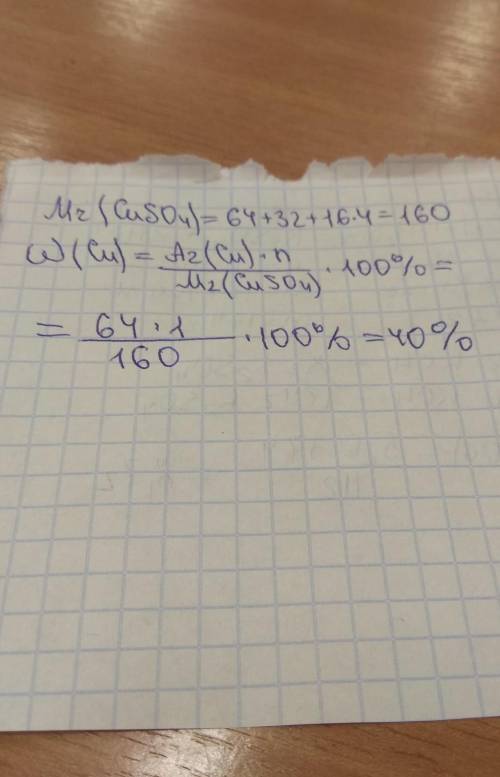 Mr(CuSO₄)=64+32+16·4=160
ω(Cu)=Ar(Cu)·n/Mr(CuSO₄)·100%=
=64·1/160·100%=40%